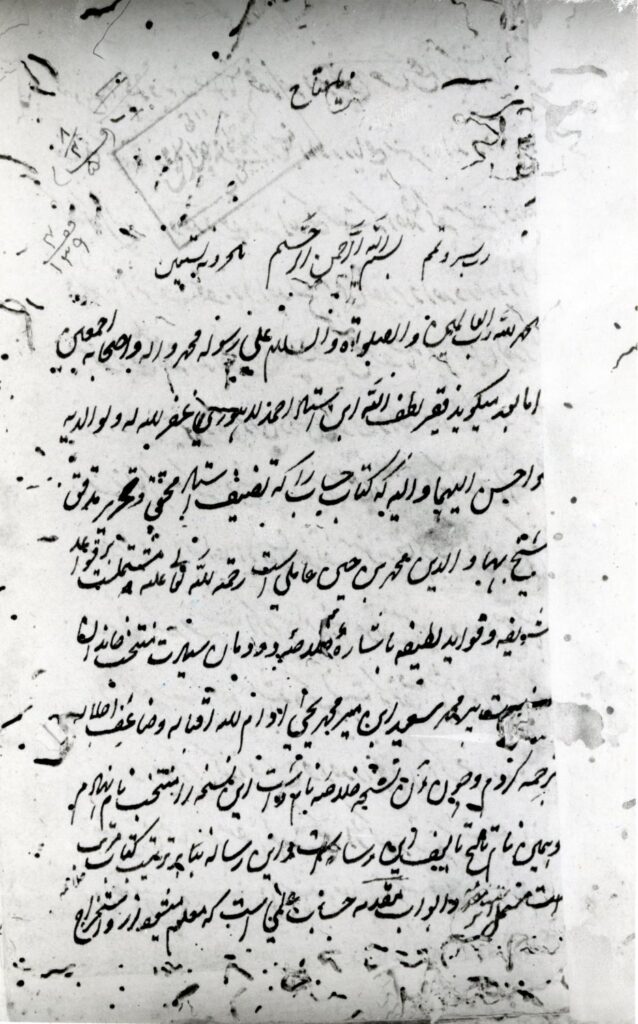 یا فتاح
رب یسر و تمم بسم الله الرحمن الرحیم
الحمد لله رب العالمین والصلوة والسلام علی رسوله محمد واله واصحابه اجمعین
اما بعد میکوید فقیر لطف الله ابن استاد احمد لاهوری غفر الله له ولوالدیه
واحسن الیهما والیه که کتاب حساب را که تصنیف استاد محقق و تحریر مدقق
شیخ بهاء الدین محمد بن حسین عاملی است رحمة الله تعالی علیه مشتملست بر قواعد
شریفه و فواید لطیفه باشارهٔ دودمان سیادت منتخب خاندان
میر محمد سعید ابن میر محمد یحیی ادام الله اقباله وضاعف اجلاله
ترجمه کردم و چون آن نسخه خلاصه نام داشت این نسخه را منتخب نام نهادم
و همین نام تاریخ تالیف این رساله است و این رساله بنابر ترتیب کتاب
است مشتمل بر مقدمه و ابواب مقدمه حساب علمی است که معلوم میشود از و استخراج